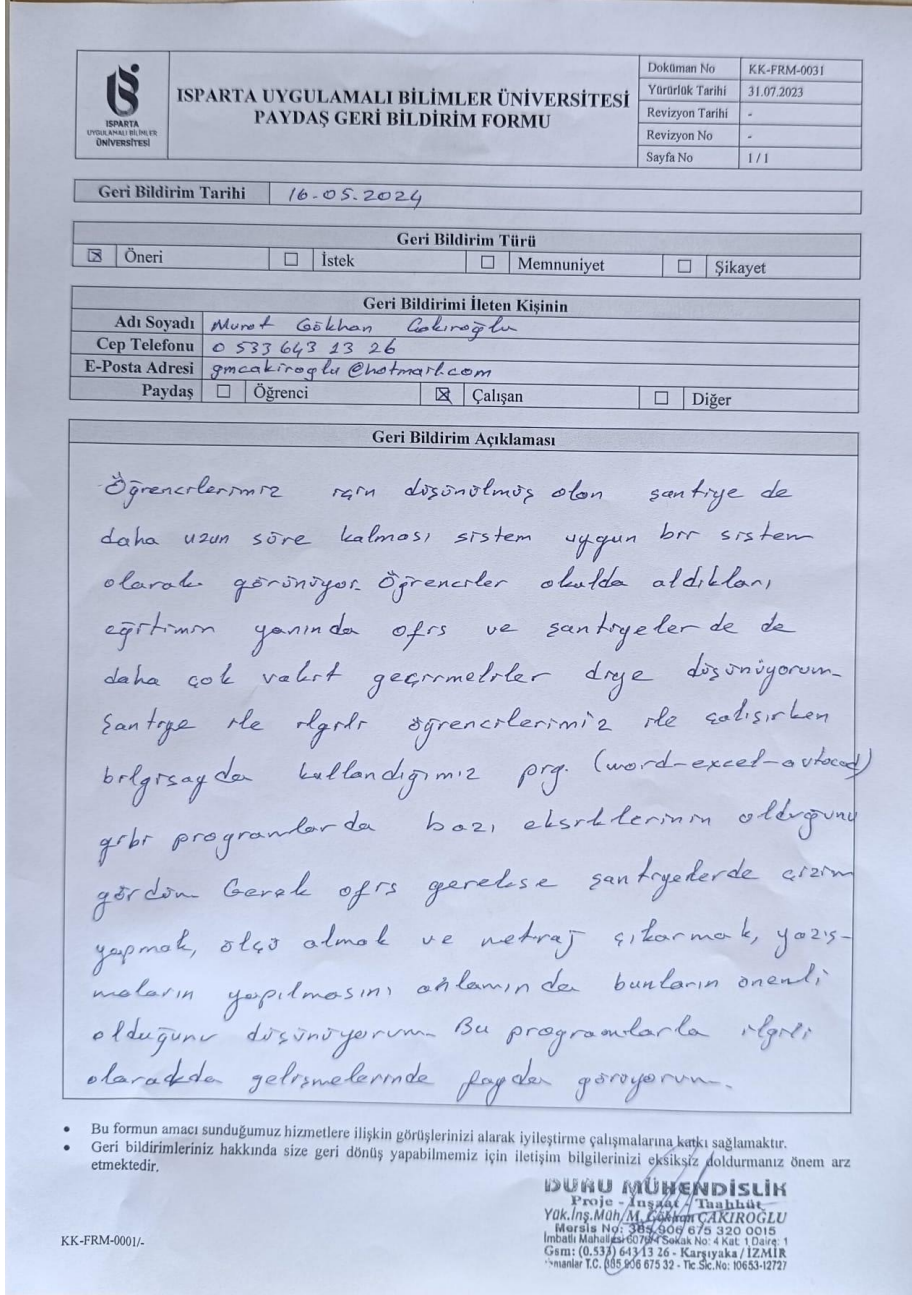 ISPARTA
UYGULAMALI BİLİMLER
ÜNİVERSİTESİ
ISPARTA UYGULAMALI BİLİMLER ÜNİVERSİTESİ
PAYDAŞ GERİ BİLDİRİM FORMU
Doküman No KK-FRM-0031
Yürürlük Tarihi 31.07.2023
Revizyon Tarihi -
Revizyon No -
Sayfa No 1 / 1
Geri Bildirim Tarihi 16.05.2024
Geri Bildirim Türü
☒ Öneri ☐ İstek ☐ Memnuniyet ☐ Şikayet
Geri Bildirimi İleten Kişinin
Adı Soyadı Murat Gökhan Çakıroğlu
Cep Telefonu 0 533 643 13 26
E-Posta Adresi gmcakiroglu@hotmail.com
Paydaş ☐ Öğrenci ☒ Çalışan ☐ Diğer
Geri Bildirim Açıklaması
Öğrencilerimiz için düşünülmüş olan şantiye de
daha uzun süre kalması sistem uygun bir sistem
olarak görünüyor. Öğrenciler okulda aldıkları
eğitimin yanında ofis ve şantiyeler de de
daha çok vakit geçirmeliler diye düşünüyorum.
Şantiye ile ilgili öğrencilerimiz ile çalışırken
bilgisayda kullandığımız prg. (word-excel-autocad)
gibi programlarda bazı eksiklerinin olduğunu
gördüm Gerek ofis gerekse şantiyelerde çizim
yapmak, ölçü almak ve metraj çıkarmak, yazış-
maların yapılmasını anlamında bunların önemli
olduğunu düşünüyorum. Bu programlarla ilgili
olarakda gelişmelerinde fayda görüyorum.
• Bu formun amacı sunduğumuz hizmetlere ilişkin görüşlerinizi alarak iyileştirme çalışmalarına katkı sağlamaktır.
• Geri bildirimleriniz hakkında size geri dönüş yapabilmemiz için iletişim bilgilerinizi eksiksiz doldurmanız önem arz
etmektedir.
DURU MÜHENDİSLİK
Proje - İnşaat / Taahhüt
Yük.İnş.Müh M. Gökhan ÇAKIROĞLU
Mersis No: 385 906 675 320 0015
İmbatlı Mahallesi Sokak No: 4 Kat: 1 Daire: 1
Gsm: (0.533) 643 13 26 - Karşıyaka / İZMİR
T.C. 385 906 675 32 - Tic.Sic.No: 10653-12727
KK-FRM-0001/-